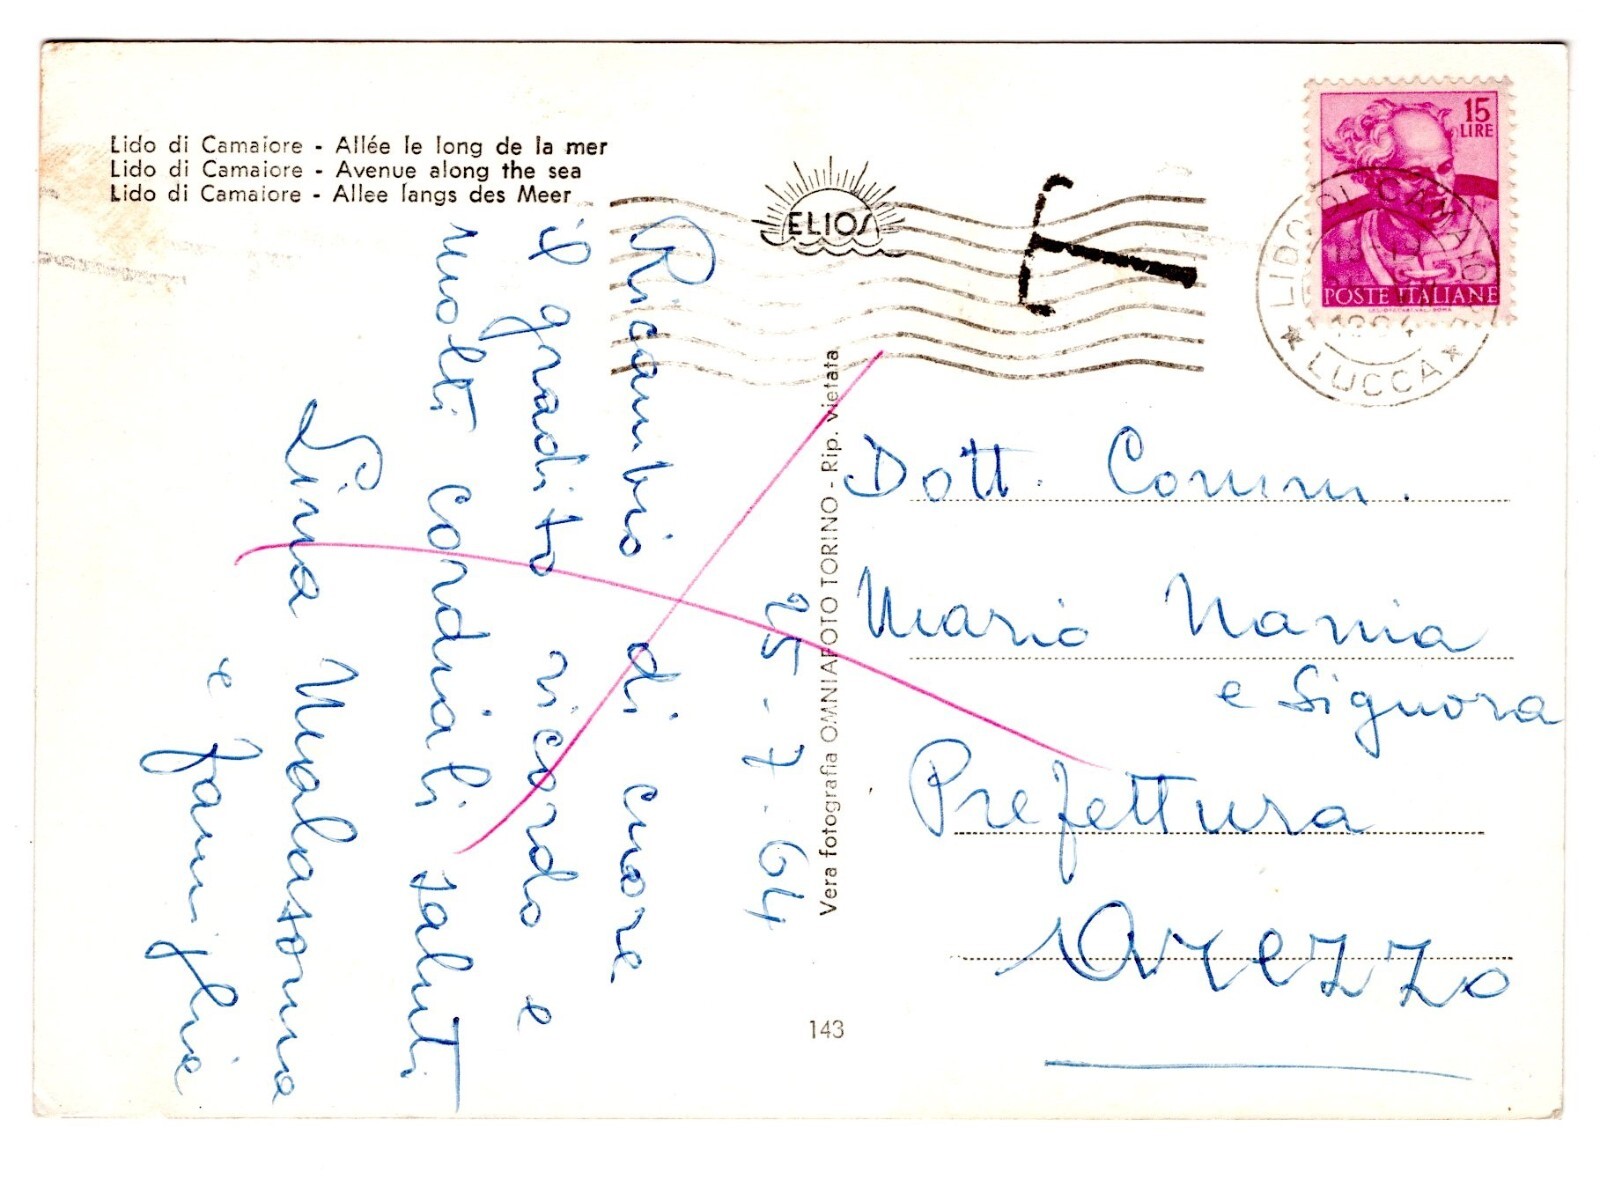 Lido di Camaiore - Allée le long de la mer
Lido di Camaiore - Avenue along the sea
Lido di Camaiore - Allee langs des Meer
ELIOS
T
15
LIRE
POSTE ITALIANE
LIDO DI CAMAIORE
LUCCA
25-7-64
Ricambio di cuore
il gradito ricordo e
molti cordiali saluti
Lina
e famiglia
Vera fotografia OMNIAFOTO TORINO - Rip. vietata
Dott. Comm.
Mario Nania
e Signora
Prefettura
Arezzo
143